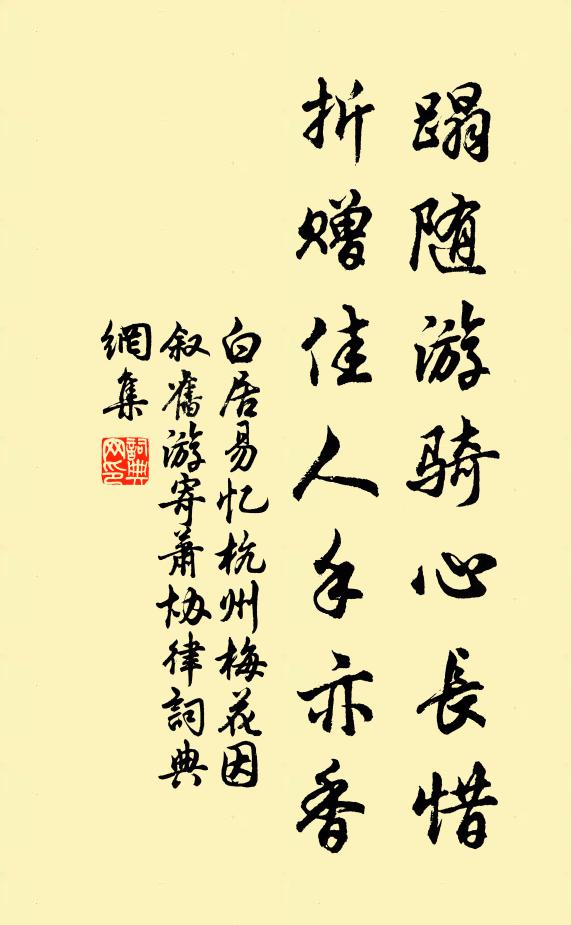 蹋随游骑心長惜
折赠佳人手亦香
白居易忆杭州梅花因
叙舊游寄萧协律詞典
網集
詞典网印